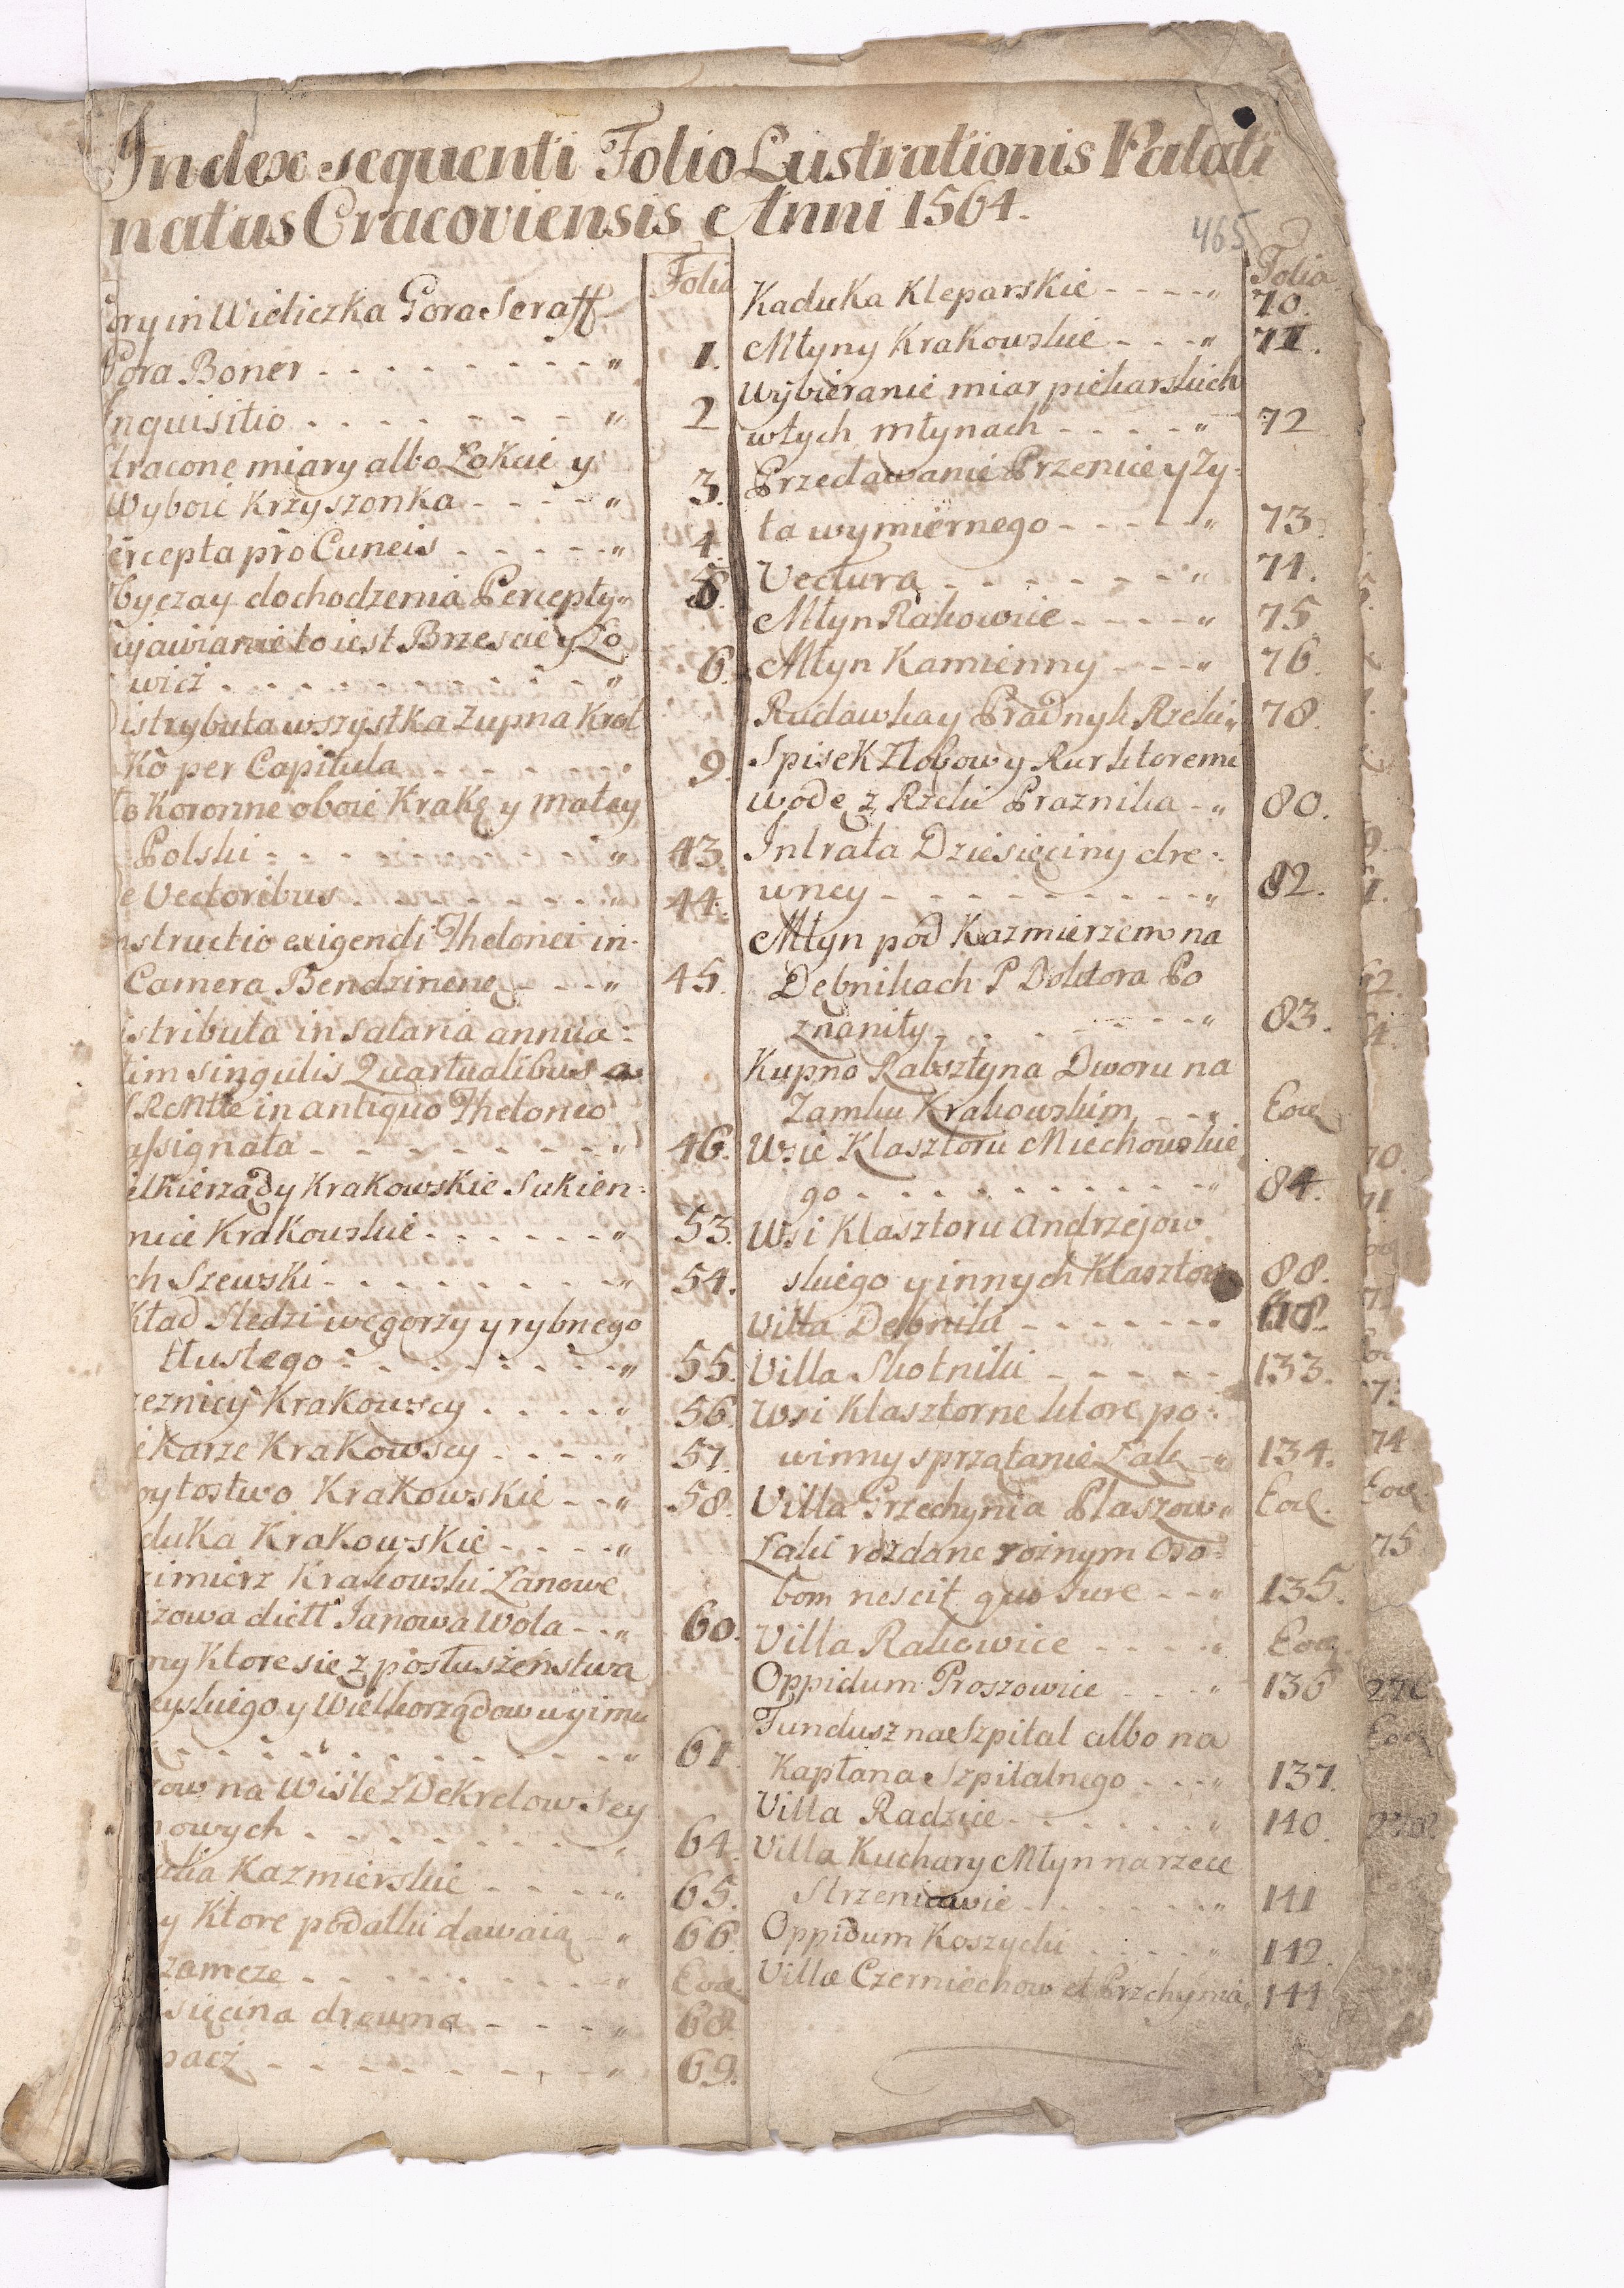 Index sequenti Folio Lustrationis Palati
natus Cracoviensis Anni 1564.
465
Folia
ory in Wieliczka Gora Seraff
Gora Boner 1.
Inquisitio 2
tracone miary albo Łokcie y
Wyboie Krzyszonka 3.
ercepta pro Cuneis 4.
byczay dochodzenia Percepty 5.
ujawianie to iest Brzescie y Lo
wicz 6.
istrybuta wszystka Zupna Krol
Ko per Capitula 9.
to Koronne oboie Krakę y małey
Polski 43.
e Vectoribus 44.
nstructio exigendi Thelonei in
Camera Bendzinene 45.
istributa in salaria annua
tim singulis Quartualibus a
SRMtte in antiquo Theloneo
assignata 46.
ilkierządy Krakowskie Sukien
nice Krakowskie 53.
ch Szewski 54.
Kład Sledzi węgorzy y rybnego
tłustego 55.
zeznicy Krakowscy 56.
ekarze Krakowscy 57.
oytostwo Krakowskie 58.
duka Krakowskie
zimierz Krakowski Lanowe
izowa dictt Janowa Wola 60.
ny Ktore się z posłuszeństwa
yskiego y Wielkorządow uyimu
61.
zow na Wiśle z Dekretow Sey
mowych 64.
Kazmierskie 65.
y Ktore podatki dawaią 66.
zamcze Eod
sięcina drewna 68.
pacż 69.
Folia
Kaduka Kleparskie 70.
Młyny Krakowskie 71.
Wybieranie miar piekarskich
wtych młynach 72
Przedawanie Przenice y Zy
ta wymiernego 73.
Vectura 74.
Młyn Rakowice 75
Młyn Kamienny 76.
Rudawka y Prądnyk Rzeki 78.
Spisek Złobow y Rur ktoremi
wodę z Rzeki Praznika 80.
Intrata Dziesięciny dre
wney 82.
Młyn pod Kazmierzem na
Dębnikach P Doktora Po
znanity 83.
Kupno Rabsztyna Dworu na
Zamku Krakowskim Eod
Wsie Klasztoru Miechowskie
go 84.
Wsi Klasztoru Andrzejow
skiego y innych Klasztor 88.
Villa Debniki
Villa Skotniki 133.
Wsi Klasztorne ktore po
winny sprzątanie Łąk 134.
Villa Przechynia Płaszow Eod.
Łąki rozdane roznym Oso
bom nescit quo Jure 135.
Villa Rakowice Eod.
Oppidum Proszowice 136
Fundusz na Szpital albo na
Kapłana Szpitalnego 137.
Villa Radzice 140.
Villa Kuchary Młyn na rzece
Strzeniawie 141
Oppidum Koszycki 142.
Villa Czerniechow et Przchynia 144